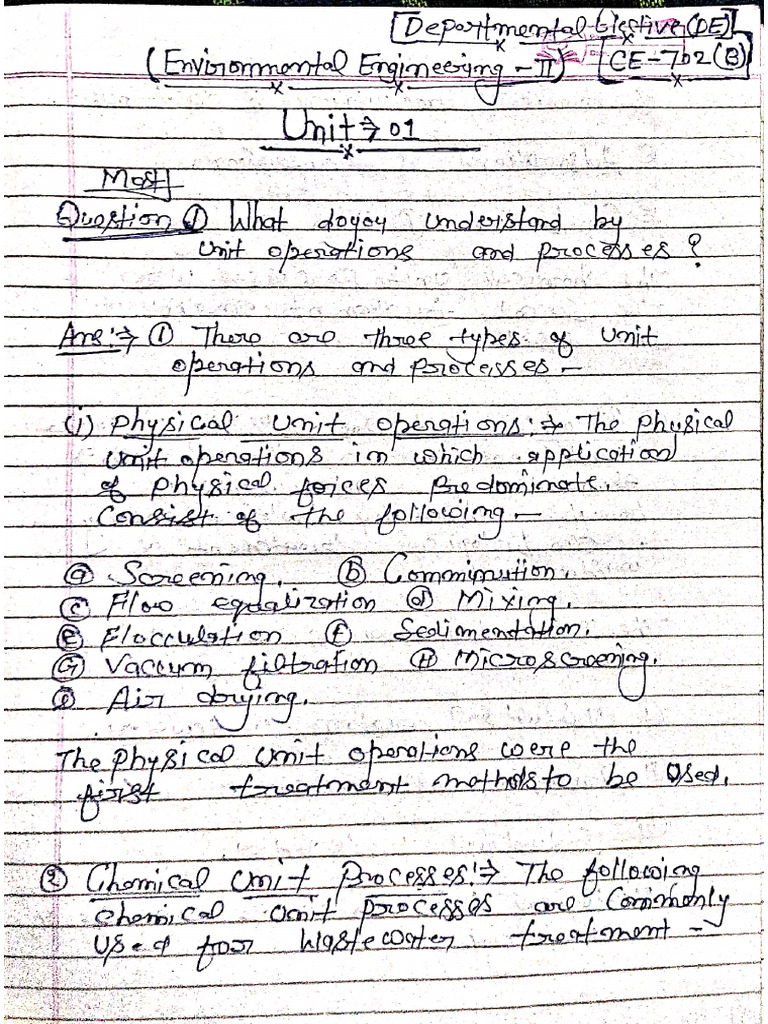 Departmental Elective (DE)
(Environmental Engineering - II) CE-702(B)
Unit → 01
Most
Question ① What doyoy understand by
unit operations and processes?
Ans:→ ① There are three types of unit
operations and processes -
(i) Physical unit operations:→ The Physical
unit operations in which application
of physical forces predominate.
Consist of the following -
(a) Screening. (b) Comminution.
(c) Flow equalization (d) Mixing.
(e) Flocculation (f) Sedimendation.
(G) Vaccum filtration (H) Microscreening.
Air drying.
The physical unit operations were the
first treatment methods to be used.
② Chemical unit processes:→ The following
chemical unit processes are commonly
used for Wastewater treatment -